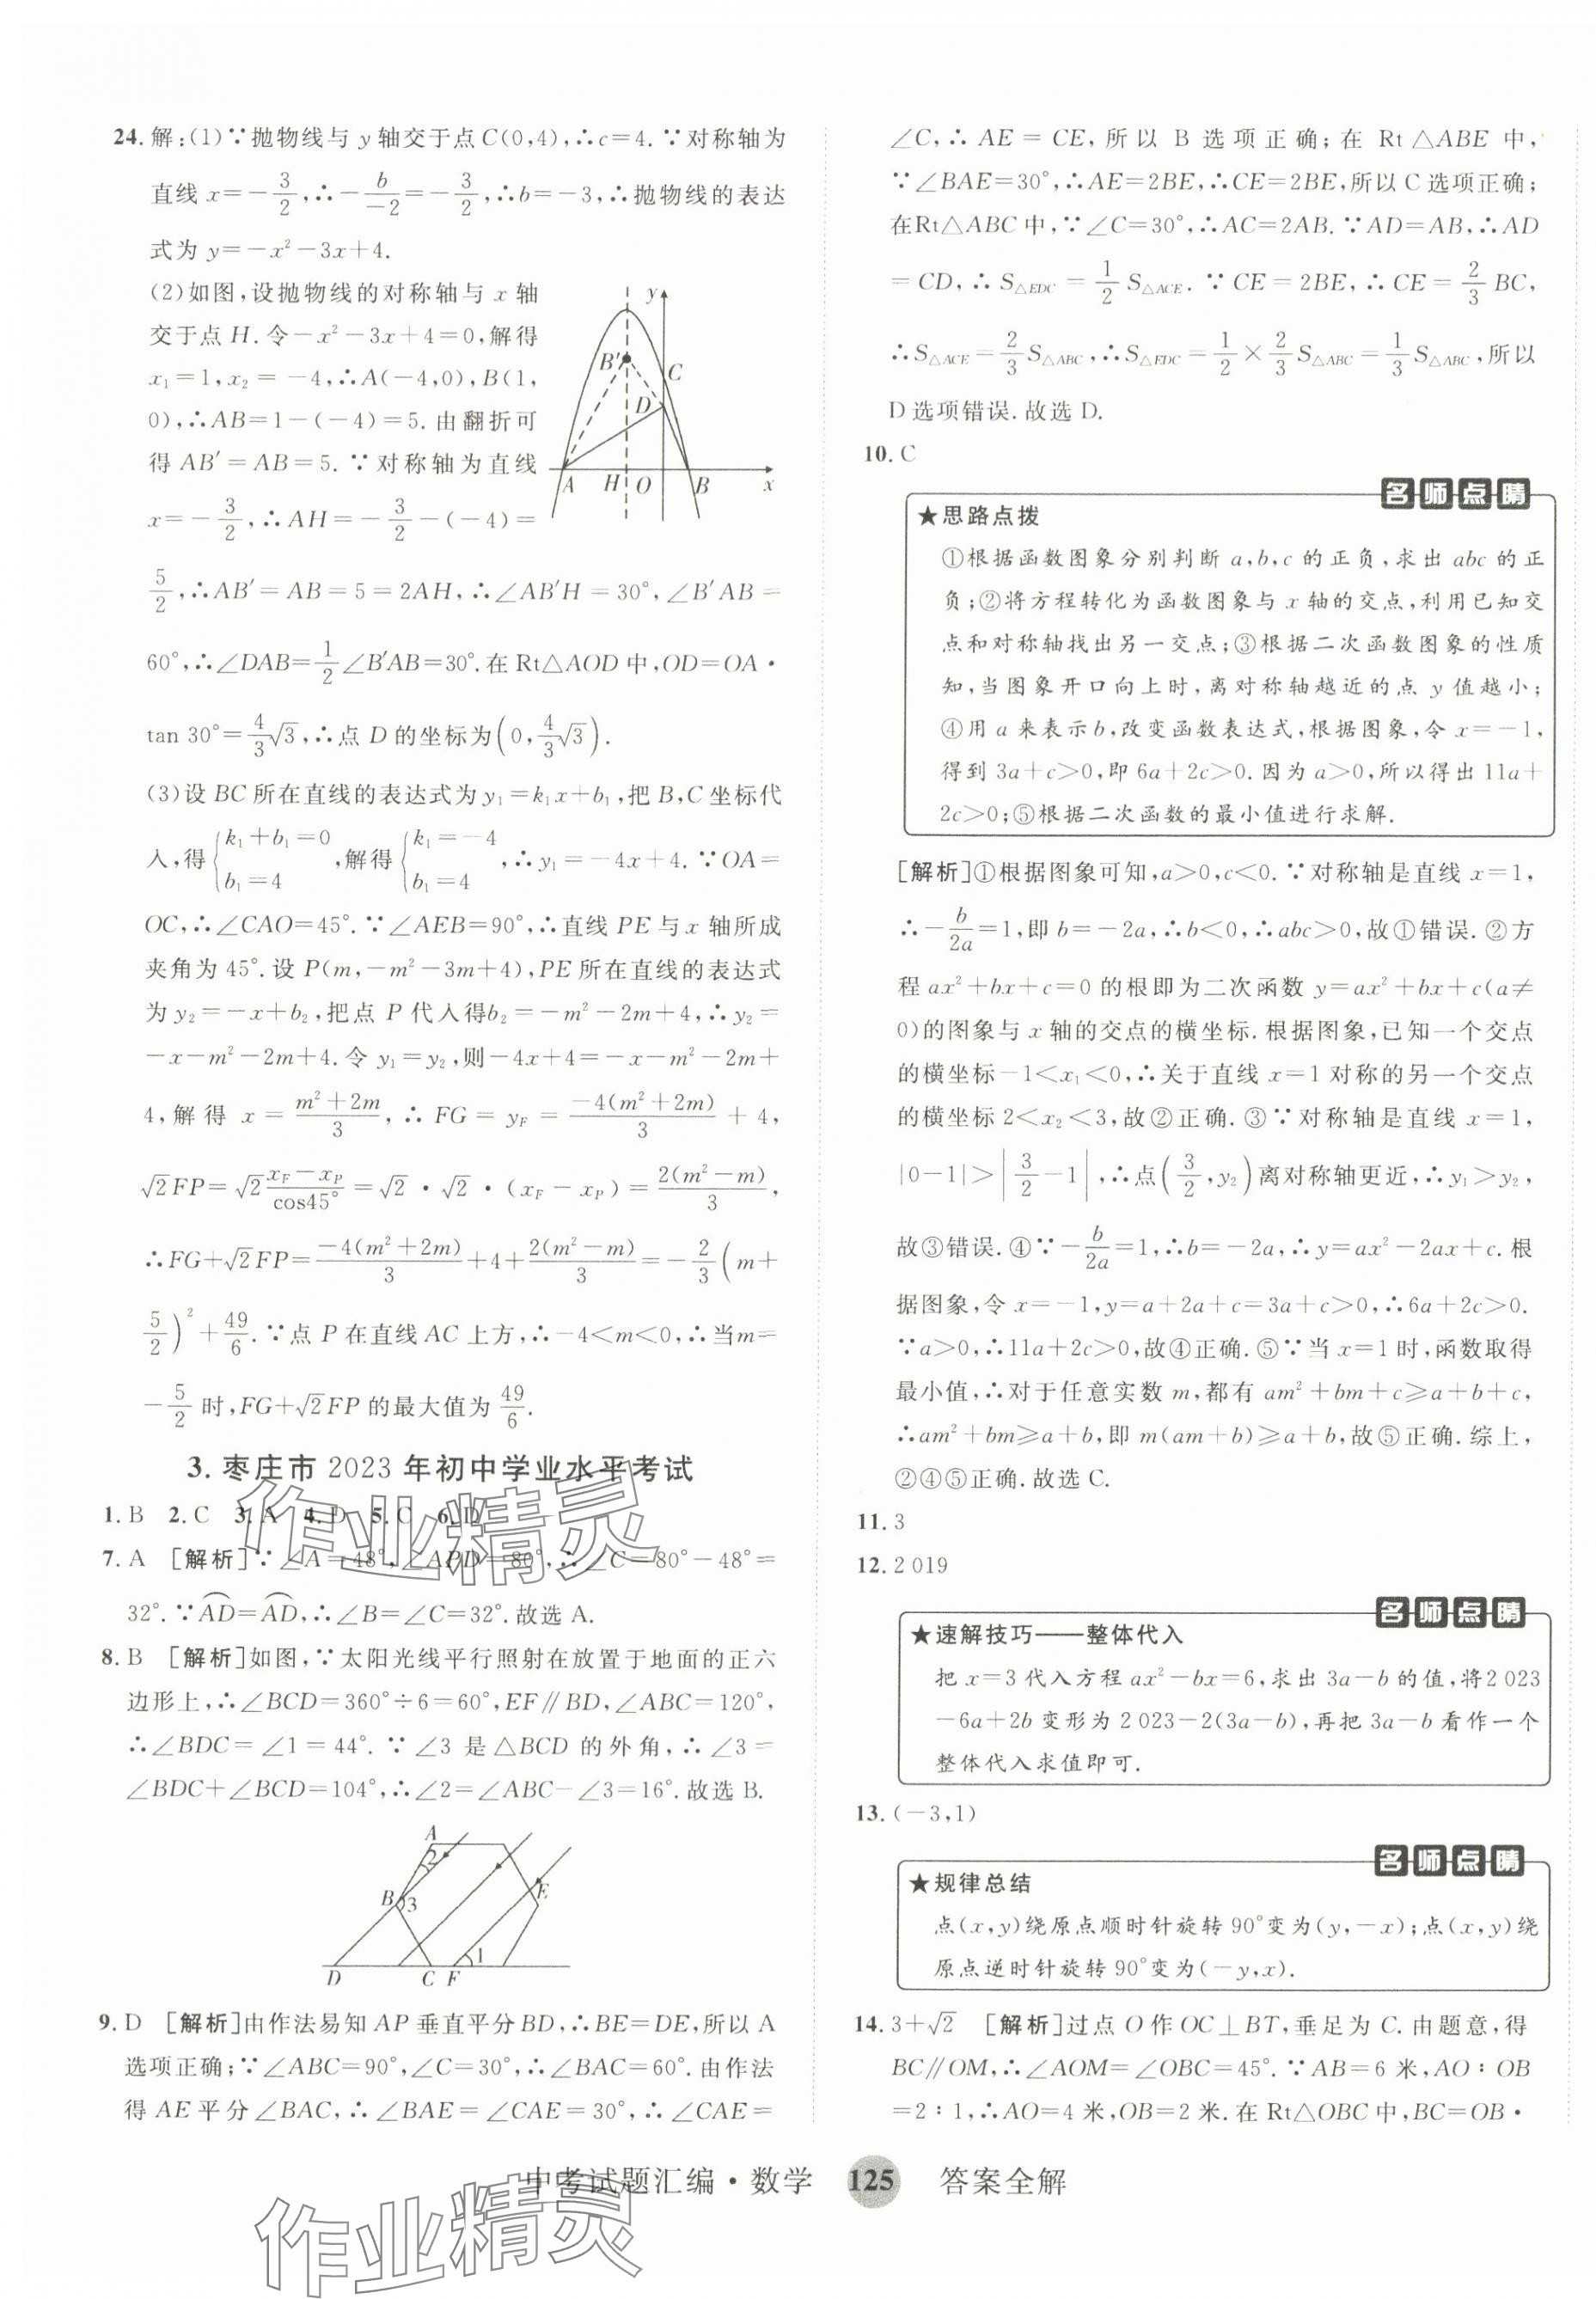 24. 解:(1)∵抛物线与 y 轴交于点 C(0,4),∴c=4. ∵对称轴为
直线 x=-3/2,∴-b/-2=-3/2,∴b=-3,∴抛物线的表达
式为 y=-x²-3x+4.
(2)如图,设抛物线的对称轴与 x 轴
交于点 H. 令-x²-3x+4=0,解得
x₁=1,x₂=-4,∴A(-4,0),B(1,
0),∴AB=1-(-4)=5. 由翻折可
得 AB′=AB=5. ∵对称轴为直线
x=-3/2,∴AH=-3/2-(-4)=
y
B′
C
D
A H O B x
5/2,∴AB′=AB=5=2AH,∴∠AB′H=30°,∠B′AB=
60°,∴∠DAB=1/2∠B′AB=30°. 在 Rt△AOD 中,OD=OA·
tan 30°=4/3√3,∴点 D 的坐标为(0,4/3√3).
(3)设 BC 所在直线的表达式为 y₁=k₁x+b₁,把 B,C 坐标代
入,得{k₁+b₁=0 b₁=4,解得{k₁=-4 b₁=4,∴y₁=-4x+4. ∵OA=
OC,∴∠CAO=45°. ∵∠AEB=90°,∴直线 PE 与 x 轴所成
夹角为 45°. 设 P(m,-m²-3m+4),PE 所在直线的表达式
为 y₂=-x+b₂,把点 P 代入得b₂=-m²-2m+4,∴y₂=
-x-m²-2m+4. 令 y₁=y₂,则-4x+4=-x-m²-2m+
4,解得 x=m²+2m/3,∴FG=y_F=-4(m²+2m)/3+4,
√2FP=√2 x_F-x_P/cos45°=√2·√2·(x_F-x_P)=2(m²-m)/3,
∴FG+√2FP=-4(m²+2m)/3+4+2(m²-m)/3=-2/3(m+
5/2)²+49/6. ∵点 P 在直线 AC 上方,∴-4<m<0,∴当m=
-5/2时,FG+√2FP 的最大值为49/6.
3. 枣庄市 2023 年初中学业水平考试
1. B 2. C 3. A 4. D 5. C 6. D
7. A [解析]∵∠A=48°,∠APD=80°,∴∠C=80°-48°=
32°. ∵AD=AD,∴∠B=∠C=32°. 故选 A.
8. B [解析]如图,∵太阳光线平行照射在放置于地面的正六
边形上,∴∠BCD=360°÷6=60°,EF∥BD,∠ABC=120°,
∴∠BDC=∠1=44°. ∵∠3 是△BCD 的外角,∴∠3=
∠BDC+∠BCD=104°,∴∠2=∠ABC-∠3=16°. 故选 B.
A
2
B 3 E
1
D C F
9. D [解析]由作法易知 AP 垂直平分 BD,∴BE=DE,所以 A
选项正确;∵∠ABC=90°,∠C=30°,∴∠BAC=60°. 由作法
得 AE 平分∠BAC,∴∠BAE=∠CAE=30°,∴∠CAE=
∠C,∴AE=CE,所以 B 选项正确;在 Rt△ABE 中,
∵∠BAE=30°,∴AE=2BE,∴CE=2BE,所以 C 选项正确;
在Rt△ABC 中,∵∠C=30°,∴AC=2AB. ∵AD=AB,∴AD
=CD,∴S△EDC=1/2S△ACE. ∵CE=2BE,∴CE=2/3BC,
∴S△ACE=2/3S△ABC,∴S△EDC=1/2×2/3S△ABC=1/3S△ABC,所以
D 选项错误. 故选 D.
10. C
名师点睛
★思路点拨
①根据函数图象分别判断 a,b,c 的正负,求出 abc 的正
负;②将方程转化为函数图象与 x 轴的交点,利用已知交
点和对称轴找出另一交点;③根据二次函数图象的性质
知,当图象开口向上时,离对称轴越近的点 y 值越小;
④用 a 来表示b,改变函数表达式,根据图象,令 x=-1,
得到 3a+c>0,即 6a+2c>0. 因为 a>0,所以得出 11a+
2c>0;⑤根据二次函数的最小值进行求解.
[解析]①根据图象可知,a>0,c<0. ∵对称轴是直线 x=1,
∴-b/2a=1,即 b=-2a,∴b<0,∴abc>0,故①错误. ②方
程 ax²+bx+c=0 的根即为二次函数 y=ax²+bx+c(a≠
0)的图象与 x 轴的交点的横坐标. 根据图象,已知一个交点
的横坐标-1<x₁<0,∴关于直线 x=1 对称的另一个交点
的横坐标 2<x₂<3,故②正确. ③∵对称轴是直线 x=1,
|0-1|>|3/2-1|,∴点(3/2,y₂)离对称轴更近,∴y₁>y₂,
故③错误. ④∵-b/2a=1,∴b=-2a,∴y=ax²-2ax+c. 根
据图象,令 x=-1,y=a+2a+c=3a+c>0,∴6a+2c>0.
∵a>0,∴11a+2c>0,故④正确. ⑤∵当 x=1 时,函数取得
最小值,∴对于任意实数 m,都有 am²+bm+c≥a+b+c,
∴am²+bm≥a+b,即 m(am+b)≥a+b,故⑤正确. 综上,
②④⑤正确. 故选 C.
11. 3
12. 2 019
名师点睛
★速解技巧——整体代入
把 x=3 代入方程 ax²-bx=6,求出 3a-b 的值,将2 023
-6a+2b 变形为 2 023-2(3a-b),再把 3a-b 看作一个
整体代入求值即可.
13. (-3,1)
名师点睛
★规律总结
点(x,y)绕原点顺时针旋转 90°变为(y,-x);点(x,y)绕
原点逆时针旋转 90°变为(-y,x).
14. 3+√2 [解析]过点 O 作 OC⊥BT,垂足为 C. 由题意,得
BC∥OM,∴∠AOM=∠OBC=45°. ∵AB=6 米,AO∶OB
=2∶1,∴AO=4 米,OB=2 米. 在 Rt△OBC 中,BC=OB·
作业精灵
中考试题汇编·数学 125 答案全解
作业精灵